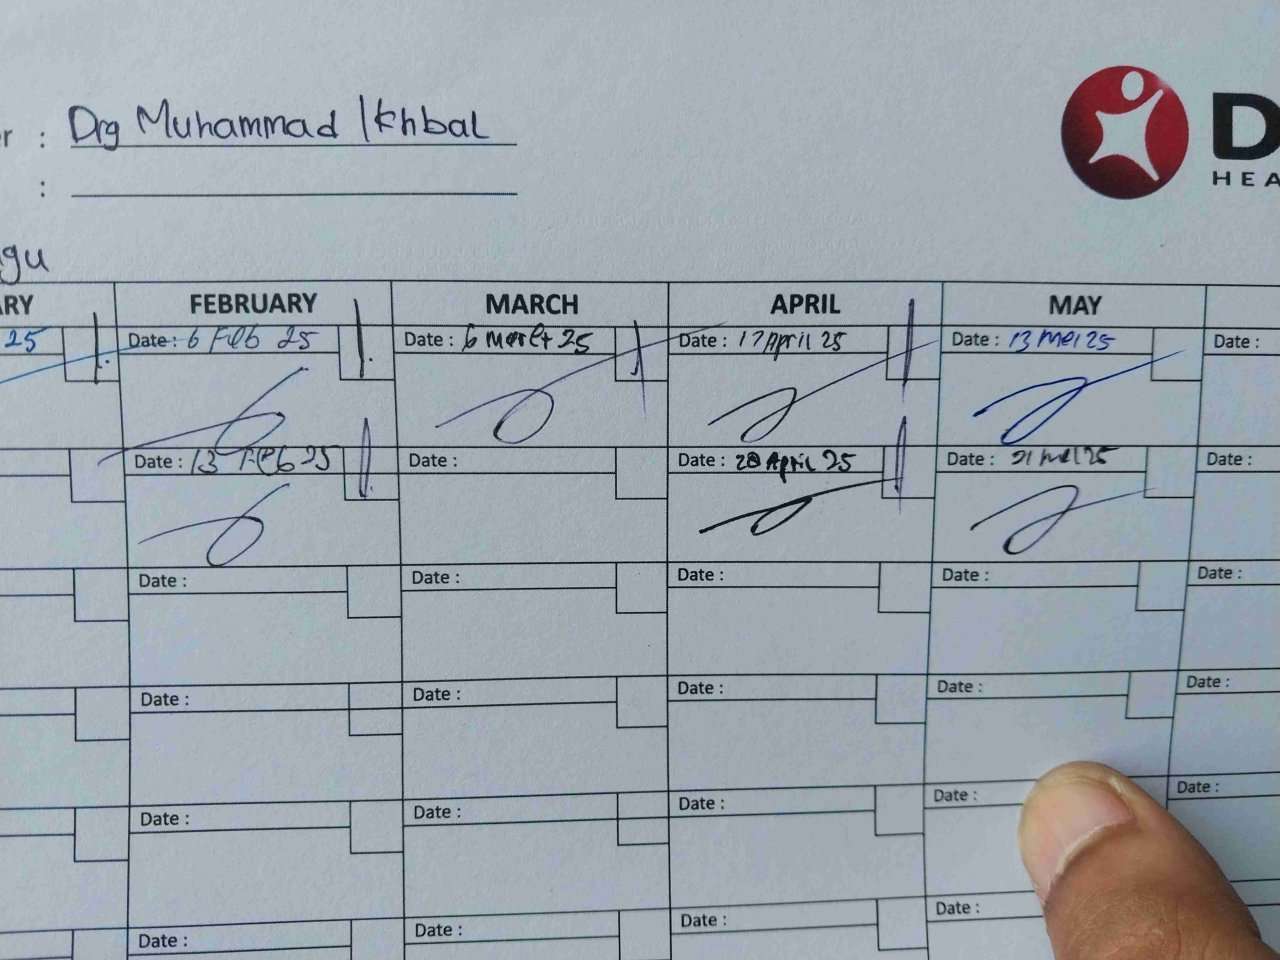 r : Drg Muhammad Ikhbal
:
D
HEA
gu
RY FEBRUARY MARCH APRIL MAY
25 Date : 6 Feb 25 Date : 6 Maret 25 Date : 17 April 25 Date : 13 Mei 25 Date :
Date : 13 Feb 25 Date : Date : 28 April 25 Date : 21 Mei 25 Date :
Date : Date : Date : Date : Date :
Date : Date : Date : Date : Date :
Date : Date : Date : Date : Date :
Date : Date : Date : Date :